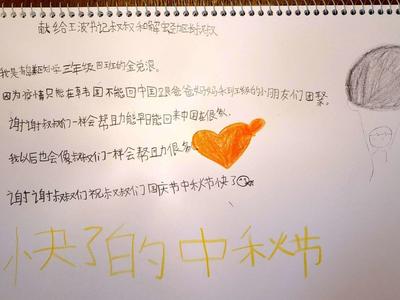 献给王波书记叔叔和解叔叔
我是小学三年级四班的金
因为疫情只能在韩国不能回中国跟爸爸妈妈和班级的小朋友们团聚。
谢谢叔叔们一样会帮助能早日能回来中国
我以后也会像叔叔们一样会帮助很多
谢谢叔叔们祝叔叔们国庆节中秋节快了
快了的中秋节